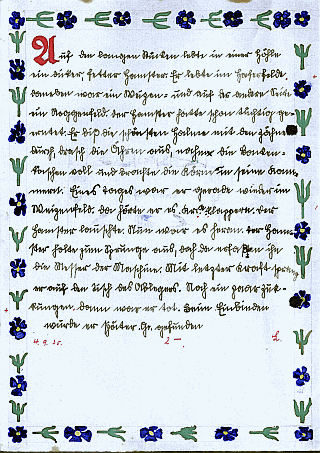 Auf den langen Rücken lebte in einer Höhle
ein dicker, fetter Hamster. Er lebte im Haferfelde,
daneben war ein Weizen- und auf der andere Seite
ein Roggenfeld. Der Hamster hatte schon tüchtig ge-
erntet. Er biß die schönsten Halme mit den Zähnen
durch, drasch die Ähren aus, nahm die Backen-
taschen voll und brachte die Körner in seine Kam-
mer. Eines Tages war er gerade wieder im
Weizenfeld. Da hörte er es klappern. Der
Hamster lauschte. Nun war es heran. Der Ham-
ster holte zum Sprunge aus, doch da erfaßten ihn
die Messer der Maschine. Mit letzter Kraft sprang
er auf den Tisch des Ablegers. Noch ein paar Zuk-
kungen, dann war er tot. Beim Einbinden
wurde er später gefunden
2 —